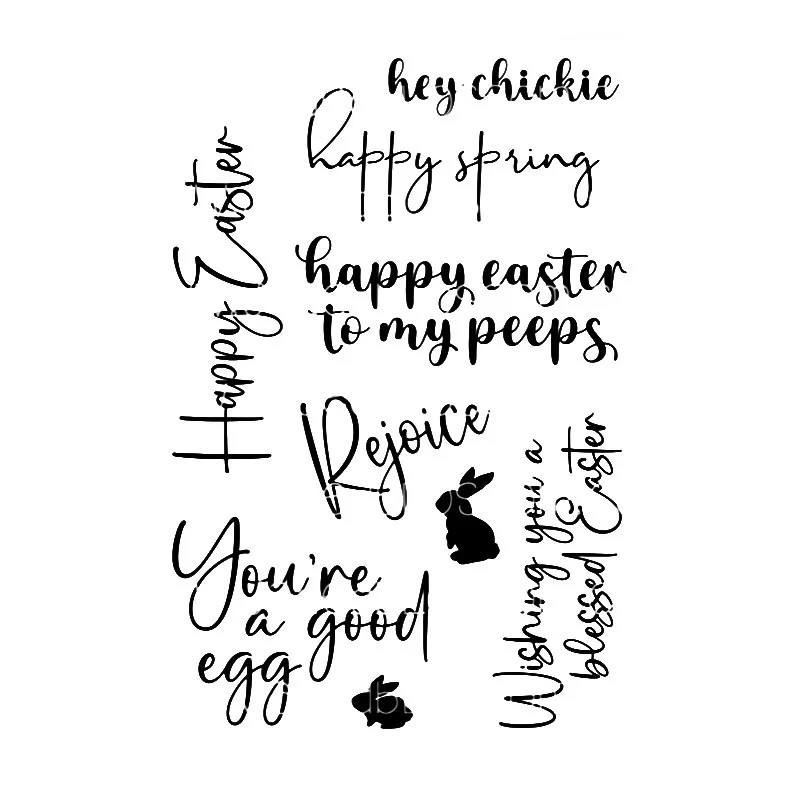 hey chickie
happy spring
Happy Easter
happy easter
to my peeps
Rejoice
Wishing you a
blessed Easter
You're
a good
egg